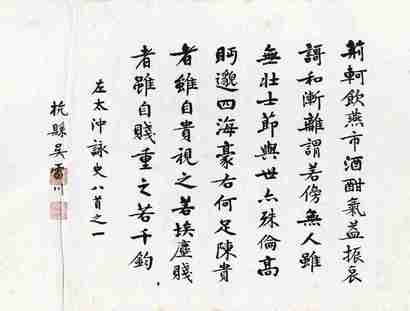 荊軻飲燕市酒酣氣益振哀
謌和漸離謂若傍無人雖
無壯士節與世亦殊倫高
眄邈四海豪右何足陳貴
者雖自貴視之若埃塵賤
者雖自賤重之若千鈞
左太沖詠史八首之一
杭縣吳雷川